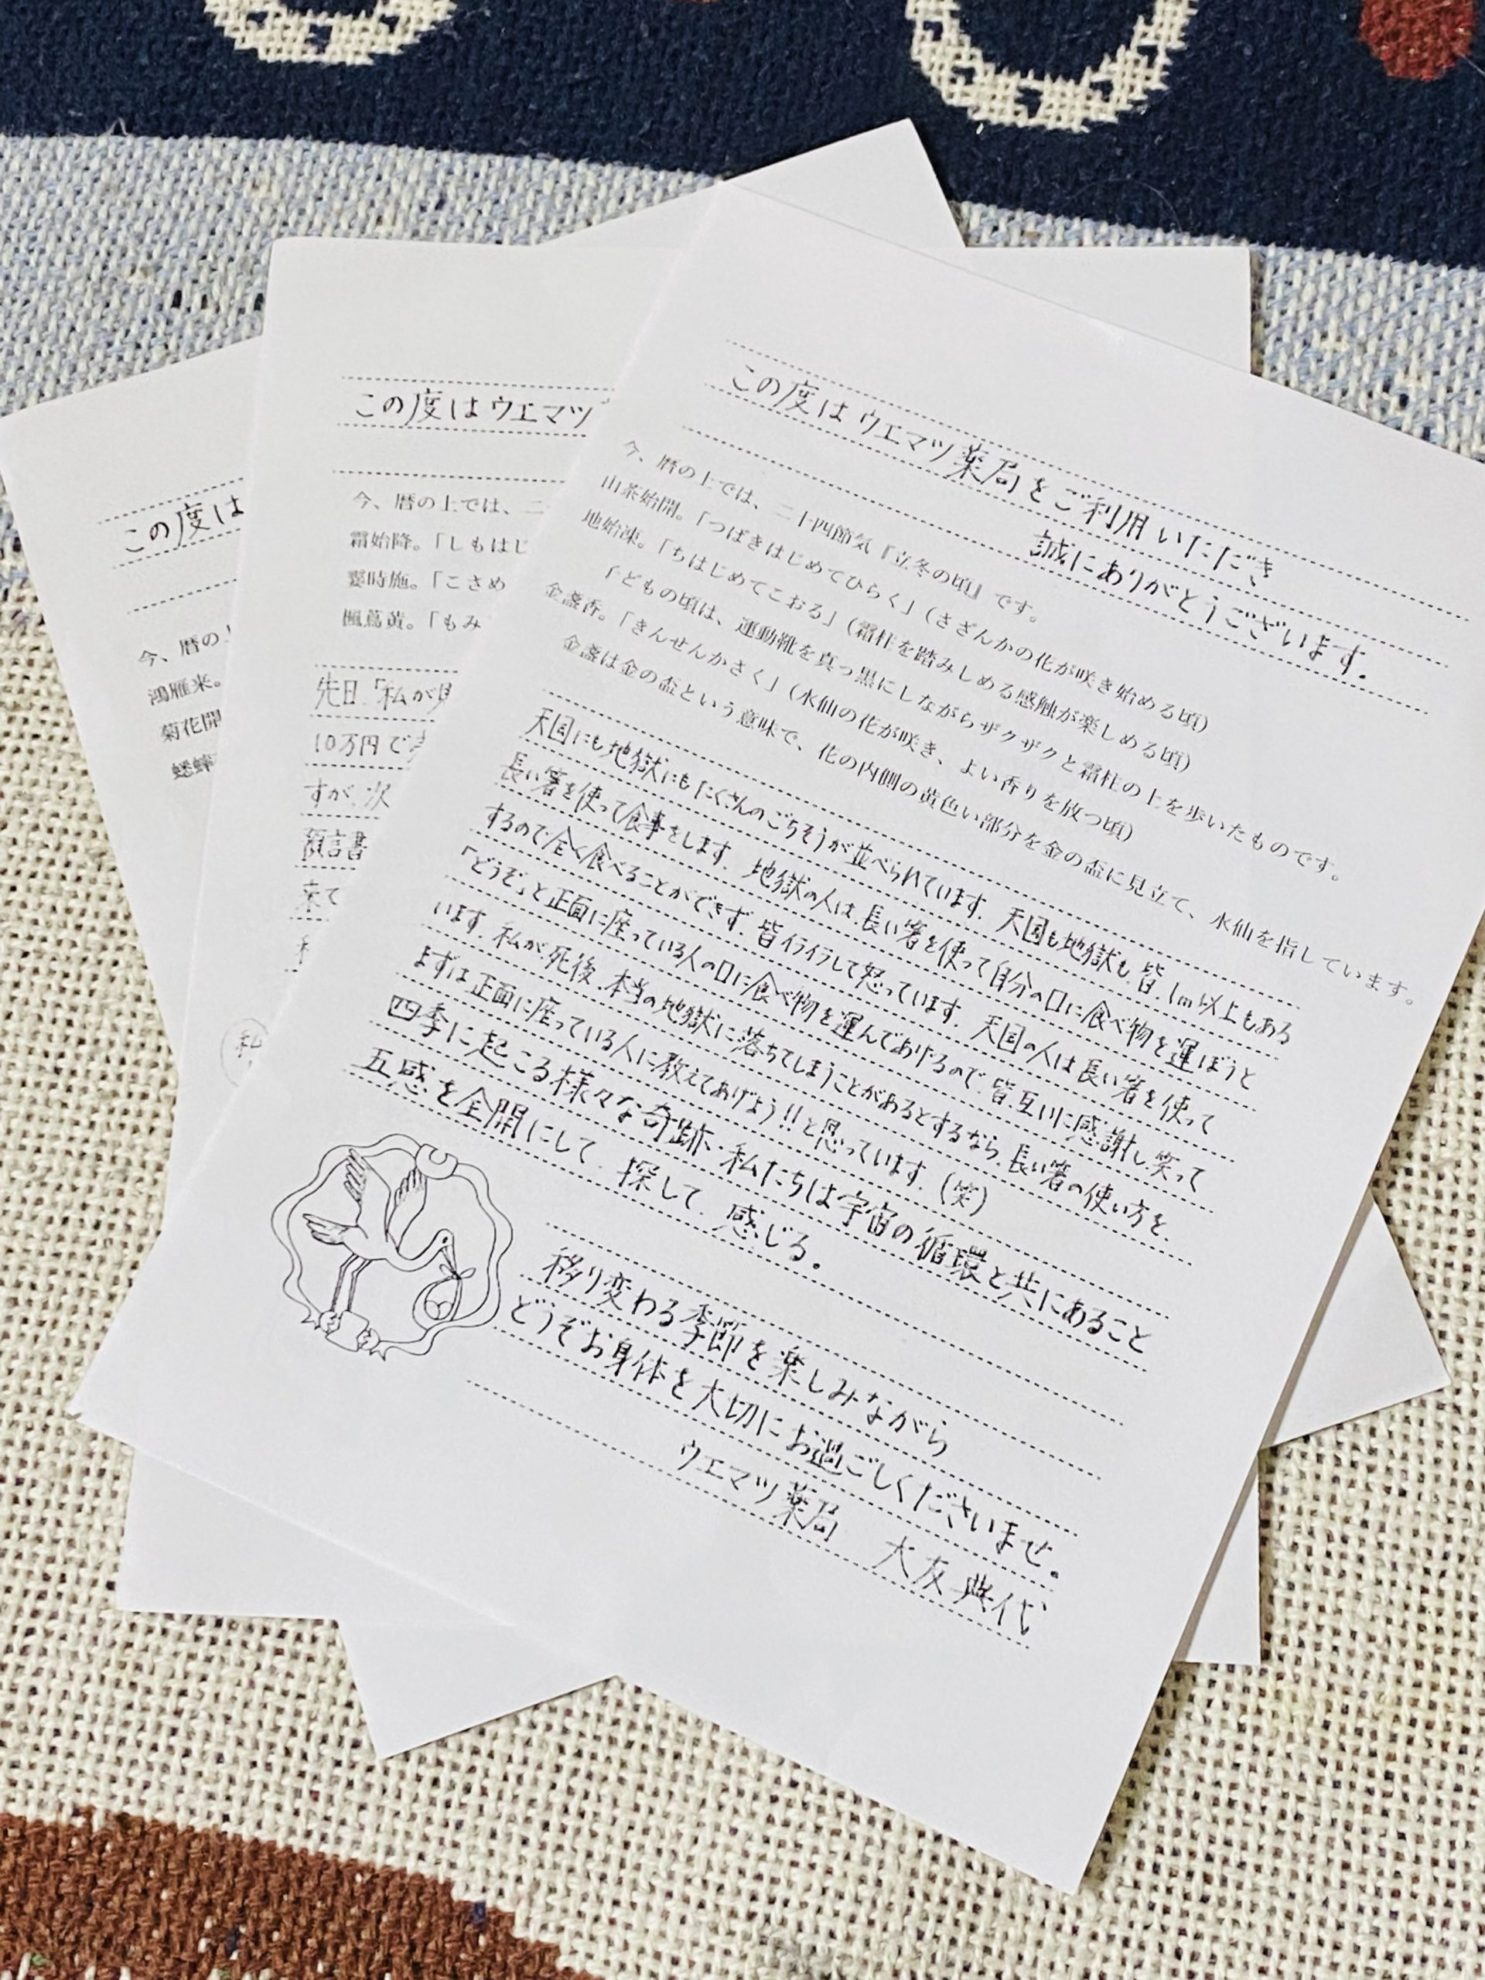 この度はウエマツ薬局をご利用いただき
誠にありがとうございます。
今、暦の上では、二十四節気『立冬の頃』です。
山茶始開。「つばきはじめてひらく」(さざんかの花が咲き始める頃)
地始凍。「ちはじめてこおる」(霜柱を踏みしめる感触が楽しめる頃)
子どもの頃は、運動靴を真っ黒にしながらザクザクと霜柱の上を歩いたものです。
金盞香。「きんせんかさく」(水仙の花が咲き、よい香りを放つ頃)
金盞は金の盃という意味で、花の内側の黄色い部分を金の盃に見立て、水仙を指しています。
天国にも地獄にもたくさんのごちそうが並べられています。天国も地獄も、皆、1m以上もある
長い箸を使って食事をします。地獄の人は、長い箸を使って自分の口に食べ物を運ぼうと
するので全く食べることができず、皆イライラして怒っています。天国の人は長い箸を使って
「どうぞ」と正面に座っている人の口に食べ物を運んであげるので、皆互いに感謝し、笑って
います。私が死後、本当の地獄に落ちてしまうことがあるとするなら、長い箸の使い方を、
まずは正面に座っている人に教えてあげよう!!と思っています。(笑)
四季に起こる様々な奇跡、私たちは宇宙の循環と共にあること
五感を全開にして、探して、感じる。
移り変わる季節を楽しみながら
どうぞお身体を大切にお過ごしくださいませ。
ウエマツ薬局 大友典代
この度はウエマツ
今、暦の上では、二
霜始降。「しもはじ
霎時施。「こさめ
楓蔦黄。「もみ
先日「私が見
10万円で
すが、次
預言書
来て
私
この度は
今、暦の上
鴻雁来。
菊花開
蟋蟀